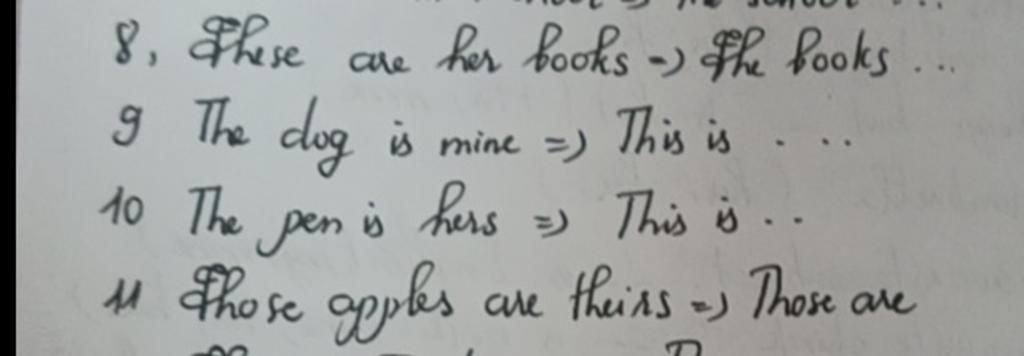 8, These are her books => The books ...
9 The dog is mine => This is ...
10 The pen is hers => This is ..
11 Those apples are theirs => Those are